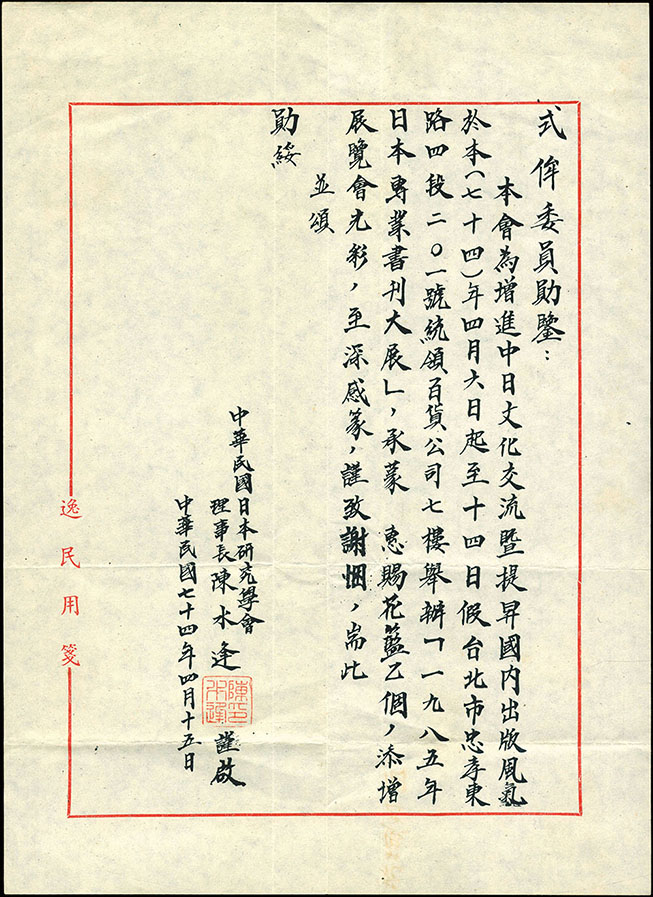 式侔委員勛鑒：
本會為增進中日文化交流暨提昇國內出版風氣
於本（七十四）年四月六日起至十四日假台北市忠孝東
路四段二〇一號統領百貨公司七樓舉辦「一九八五年
日本專業書刊大展」，承蒙　惠賜花籃乙個，添增
展覽會光彩，至深感篆，謹致謝悃，耑此
並頌
勛綏
中華民國日本研究學會
理事長陳水逢　謹啟
陳水逢印
中華民國七十四年四月十五日
逸民用箋